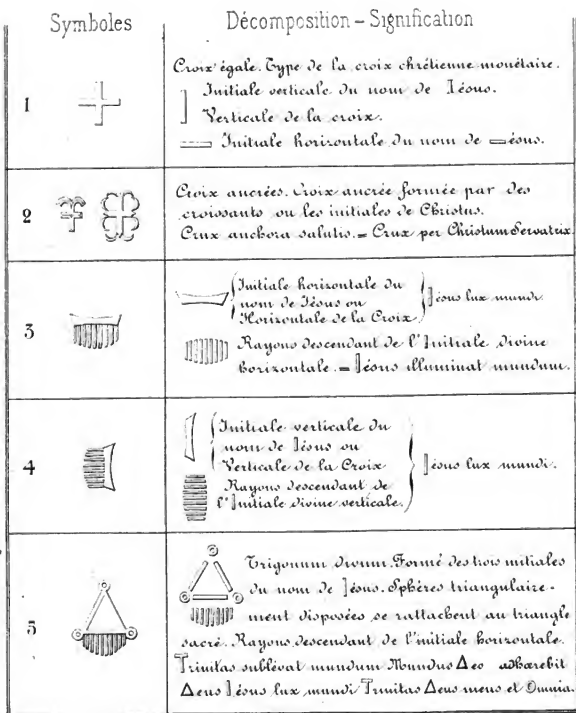 Symboles Décomposition – Signification
1
Croix égale. Type de la croix chrétienne monétaire.
Initiale verticale du nom de Iésus.
Verticale de la croix.
Initiale horizontale du nom de ésus.
2
Croix ancrées. Croix ancrée formée par des
croissants ou les initiales de Christus.
Crux anchora salutis. = Crux per Christum Servatrix.
3
Initiale horizontale du
nom de Iésus ou
Horizontale de la Croix
Iésus lux mundi
Rayons descendant de l'Initiale divine
horizontale. = Iésus illuminat mundum.
4
Initiale verticale du
nom de Iésus ou
Verticale de la Croix
Rayons descendant de
l'Initiale divine verticale.
Iésus lux mundi.
5
Trigonum divum. Formé des trois initiales
du nom de Iésus. Sphères triangulaire-
ment disposées se rattachent au triangle
sacré. Rayons descendant de l'initiale horizontale.
Trinitas sublevat mundum Mundus Δeo adhærebit
Δeus Iésus lux mundi Trinitas Δeus meus et Omnia.